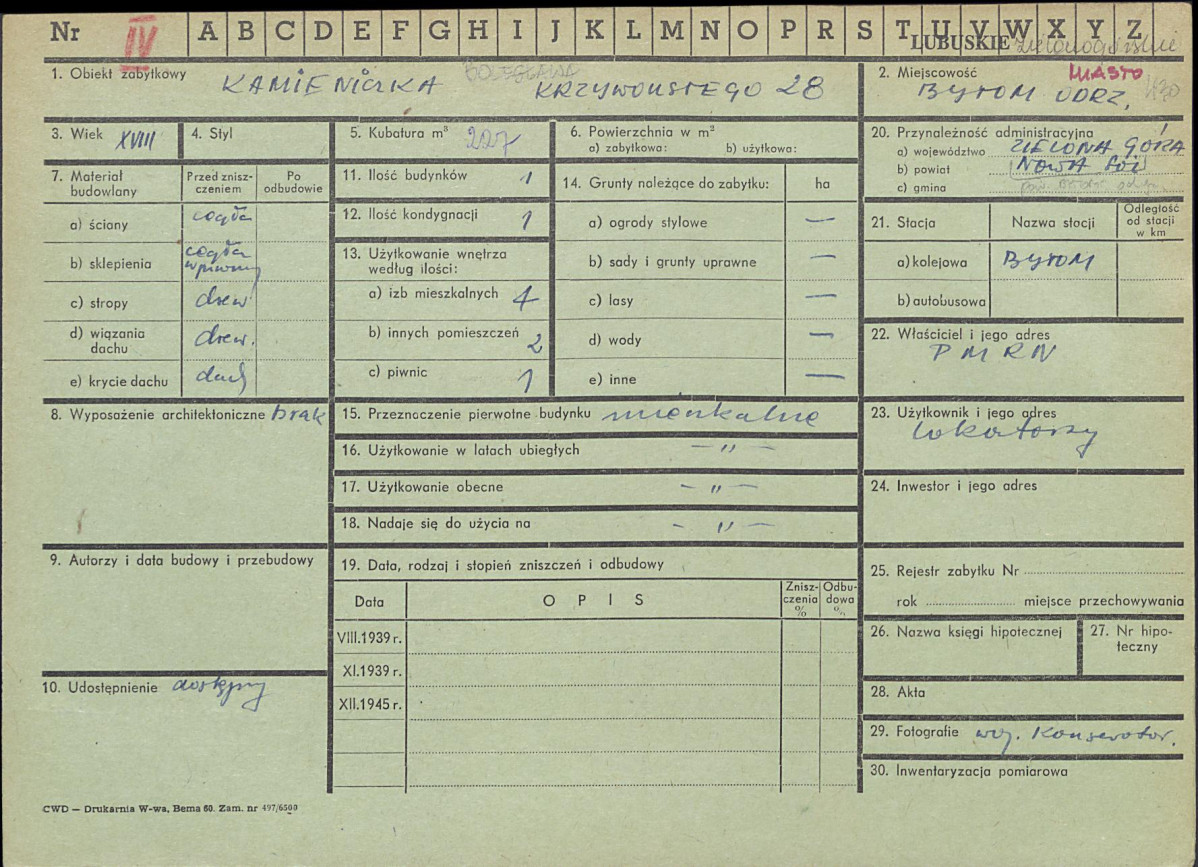 Nr IV A B C D E F G H I J K L M N O P R S T U V W X Y Z
LUBUSKIE zielonogórskie
1. Obiekt zabytkowy KAMIENICZKA BOLESŁAWA KRZYWOUSTEGO 28
2. Miejscowość MIASTO
BYTOM ODRZ.
3. Wiek XVIII
4. Styl
5. Kubatura m³ 227
6. Powierzchnia w m²
a) zabytkowa: b) użytkowa:
20. Przynależność administracyjna
a) województwo ZIELONA GÓRA
b) powiat NOWA SÓL
c) gmina
7. Materiał budowlany
Przed zniszczeniem
Po odbudowie
a) ściany cegła
b) sklepienia cegła w piwnicy
c) stropy drew
d) wiązania dachu drew.
e) krycie dachu dach
11. Ilość budynków 1
12. Ilość kondygnacji 1
13. Użytkowanie wnętrza
według ilości:
a) izb mieszkalnych 4
b) innych pomieszczeń 2
c) piwnic 1
14. Grunty należące do zabytku: ha
a) ogrody stylowe —
b) sady i grunty uprawne —
c) lasy —
d) wody —
e) inne —
21. Stacja Nazwa stacji Odległość od stacji w km
a) kolejowa BYTOM
b) autobusowa
22. Właściciel i jego adres
PMRN
8. Wyposażenie architektoniczne brak
15. Przeznaczenie pierwotne budynku mieszkalne
16. Użytkowanie w latach ubiegłych — " —
17. Użytkowanie obecne — " —
18. Nadaje się do użycia na — " —
23. Użytkownik i jego adres
lokatorzy
24. Inwestor i jego adres
9. Autorzy i data budowy i przebudowy
10. Udostępnienie dostępny
19. Data, rodzaj i stopień zniszczeń i odbudowy
Data O P I S Zniszczenia % Odbudowa %
VIII.1939 r.
XI.1939 r.
XII.1945 r.
25. Rejestr zabytku Nr
rok miejsce przechowywania
26. Nazwa księgi hipotecznej
27. Nr hipoteczny
28. Akta
29. Fotografie woj. Konserwator.
30. Inwentaryzacja pomiarowa
CWD — Drukarnia W-wa, Bema 60. Zam. nr 497/6500